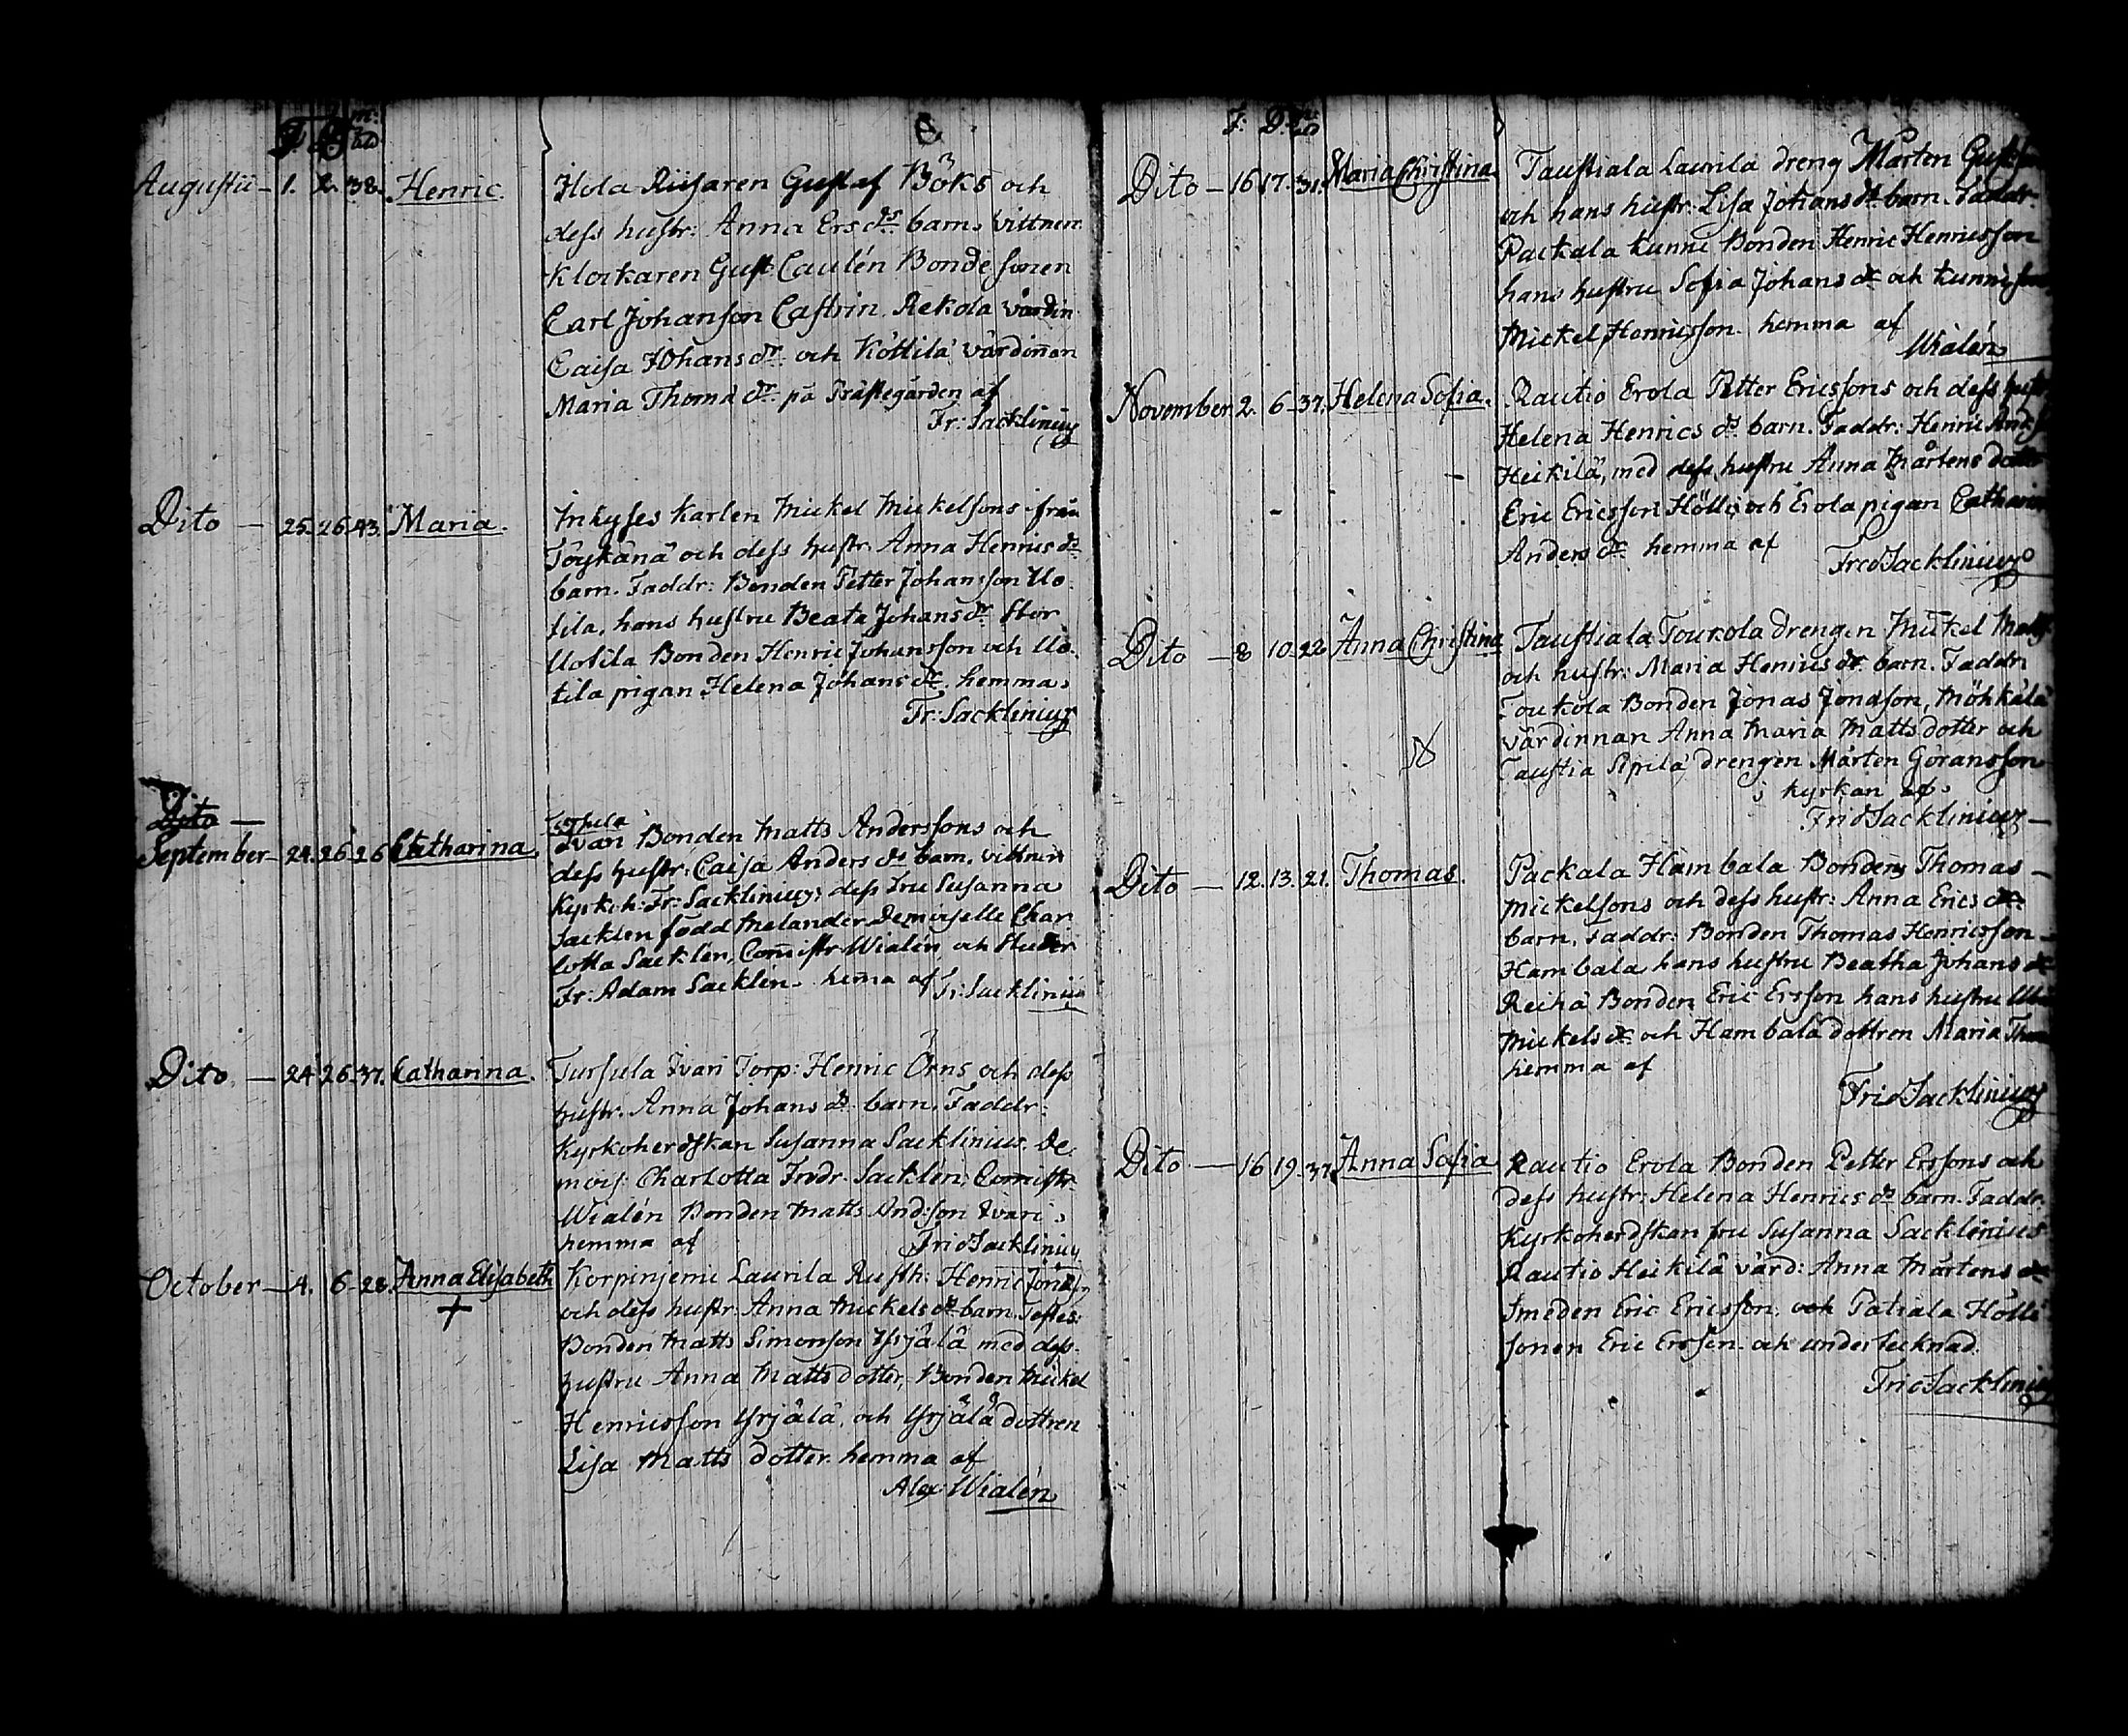 F. D. m: åld
Augustii – 1. 2. 38. Henric.
Hola Rusaren Gustaf Böks och
dess hustr: Anna Ersdr. barn. vittnen
Klockaren Gust Caulén Bondesonen
Carl Johanson Castrin. Rekola värdin
Caisa Johansdr. och Köttilä värdinnan
Maria Thomædr. på Prästegården af
Fr: Sacklinius
Dito – 25. 26. 43. Maria.
Inhyses Karlen Mickel Mickelsons från
Töykänä och dess hustr. Anna Henricsdr.
barn. Faddr: Bonden Petter Johansson Uo-
tila, hans hustru Beata Johansdr. Stor
Uotila Bonden Henric Johansson och Uo-
tila pigan Helena Johansdr. hemma
Fr: Sacklinius
Dito –
September – 24. 26. 26. Catharina.
Tursula
Ivari Bonden Matts Anderssons och
dess hustr: Caisa Andersdr. barn. vittnen
Kyrkoh: Fr: Sacklinius, dess Fru Susanna
Sacklen född Melander. Demoiselle Char-
lotta Sacklén, Comistr Wialén, och Studer
Fr: Adam Sacklén. hema af Fr: Sacklinius
Dito – 24. 26. 37. Catharina.
Tursula Ivari Torp: Henric Örns och dess
hustr. Anna Johansdr. barn. Faddr:
Kyrkoherdskan Susanna Sacklinius. De-
mois: Charlotta Fredr. Sacklén, Comistr
Wialén Bonden Matts Andsson Ivari
hemma af Frid Sacklinius
October – 4. 6. 28. Anna Elisabeth
+
Korpinjemi Laurila Rusth: Henric
och dess hustr. Anna Mickelsdr. barn. Testes:
Bonden Matts Simonson Yrjälä med dess
hustru Anna Matts dotter, Bonden Mickel
Henricsson Yrjälä, och Yrjälä dottren
Lisa Matts dotter. hemma af
Alex Wialén
F. D. m: åld
Dito – 16. 17. 31. Maria Christina.
Taustiala Laurila dreng Mårten
och hans hustr: Lisa Johansdr. barn. Faddr.
Packala Kunni Bonden Henric Henricsson
hans hustru Sofia Johansdr och Kunni
Mickel Henricsson. hemma af
Wialén
November 2. 6. 37. Helena Sofia.
Rautio Erola Petter Ericssons och dess hustr
Helena Henricsdr. barn. Faddr: Henric
Heikilä, med dess hustru Anna Mårtens dotter
Eric Ericsson Hölli och Erola pigan Catharina
Andersdr. hemma af Fred Sacklinius
Dito – 8. 10. 22. Anna Christina
Taustiala Toukola drengen Mickel
och hustr: Maria Henricsdr. barn. Faddr
Toukola Bonden Jonas Jonasson, Möhkälä
värdinnan Anna Maria Matts dotter och
Taustia Sipilä drengen Mårten Göransson
i kyrkan af
Frid Sacklinius
Dito – 12. 13. 21. Thomas.
Packala Hambala Bonden Thomas
Mickelsons och dess hustr: Anna Ericsdr.
barn. Faddr: Bonden Thomas Henricsson
Hambala hans hustru Beatha Johansdr
Reihä Bonden Eric Ersson hans hustru
Mickelsdr och Hambala dottren Maria
hemma af
Frid Sacklinius
Dito – 16. 19. 37. Anna Sofia
Rautio Erola Bonden Petter Erssons och
dess hustr: Helena Henricsdr. barn. Faddr.
Kyrkoherdskan fru Susanna Sacklinius
Rautio Heikilä värd: Anna Mårtensdr
Smeden Eric Ericsson. och Patiala Hölli
sonen Eric Ersson och undertecknad.
Frid Sacklinius